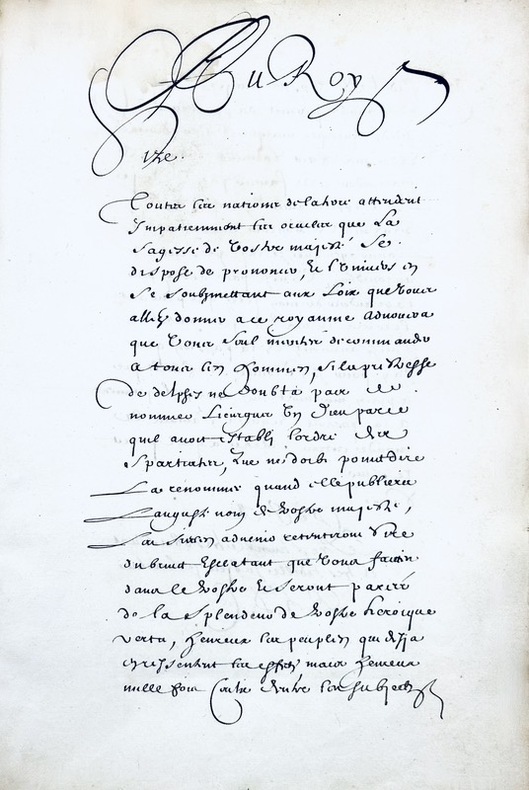 Au Roy
Sire.
Touttes les nations de la terre attendent
Impatiemment les oracles que La
Sagesse de Vostre majesté Se
dispose de prononcer, Et l'Univers en
Se Soubzmettant aux Loix que Vous
allez donner a ce royaume advouera
que Vous Seul meritez de commander
a tous les hommes, si la prestresse
de delphes ne doubta pas de
nommer Licurgue Un Dieu parce
quil avoit Estably lordre des
Spartiates, que ne doibt point dire
La renommée quand elle publiera
L'auguste nom de Vostre majesté,
Les Siecles advenir retentiront Sire
du bruit Esclatant que Vous faites
dans le Vostre Et Seront parez
de la Splendeur de Vostre heroique
vertu, heureux les peuples qui desja
en ressentent les effets mais heureux
mille fois Entre les Subjects